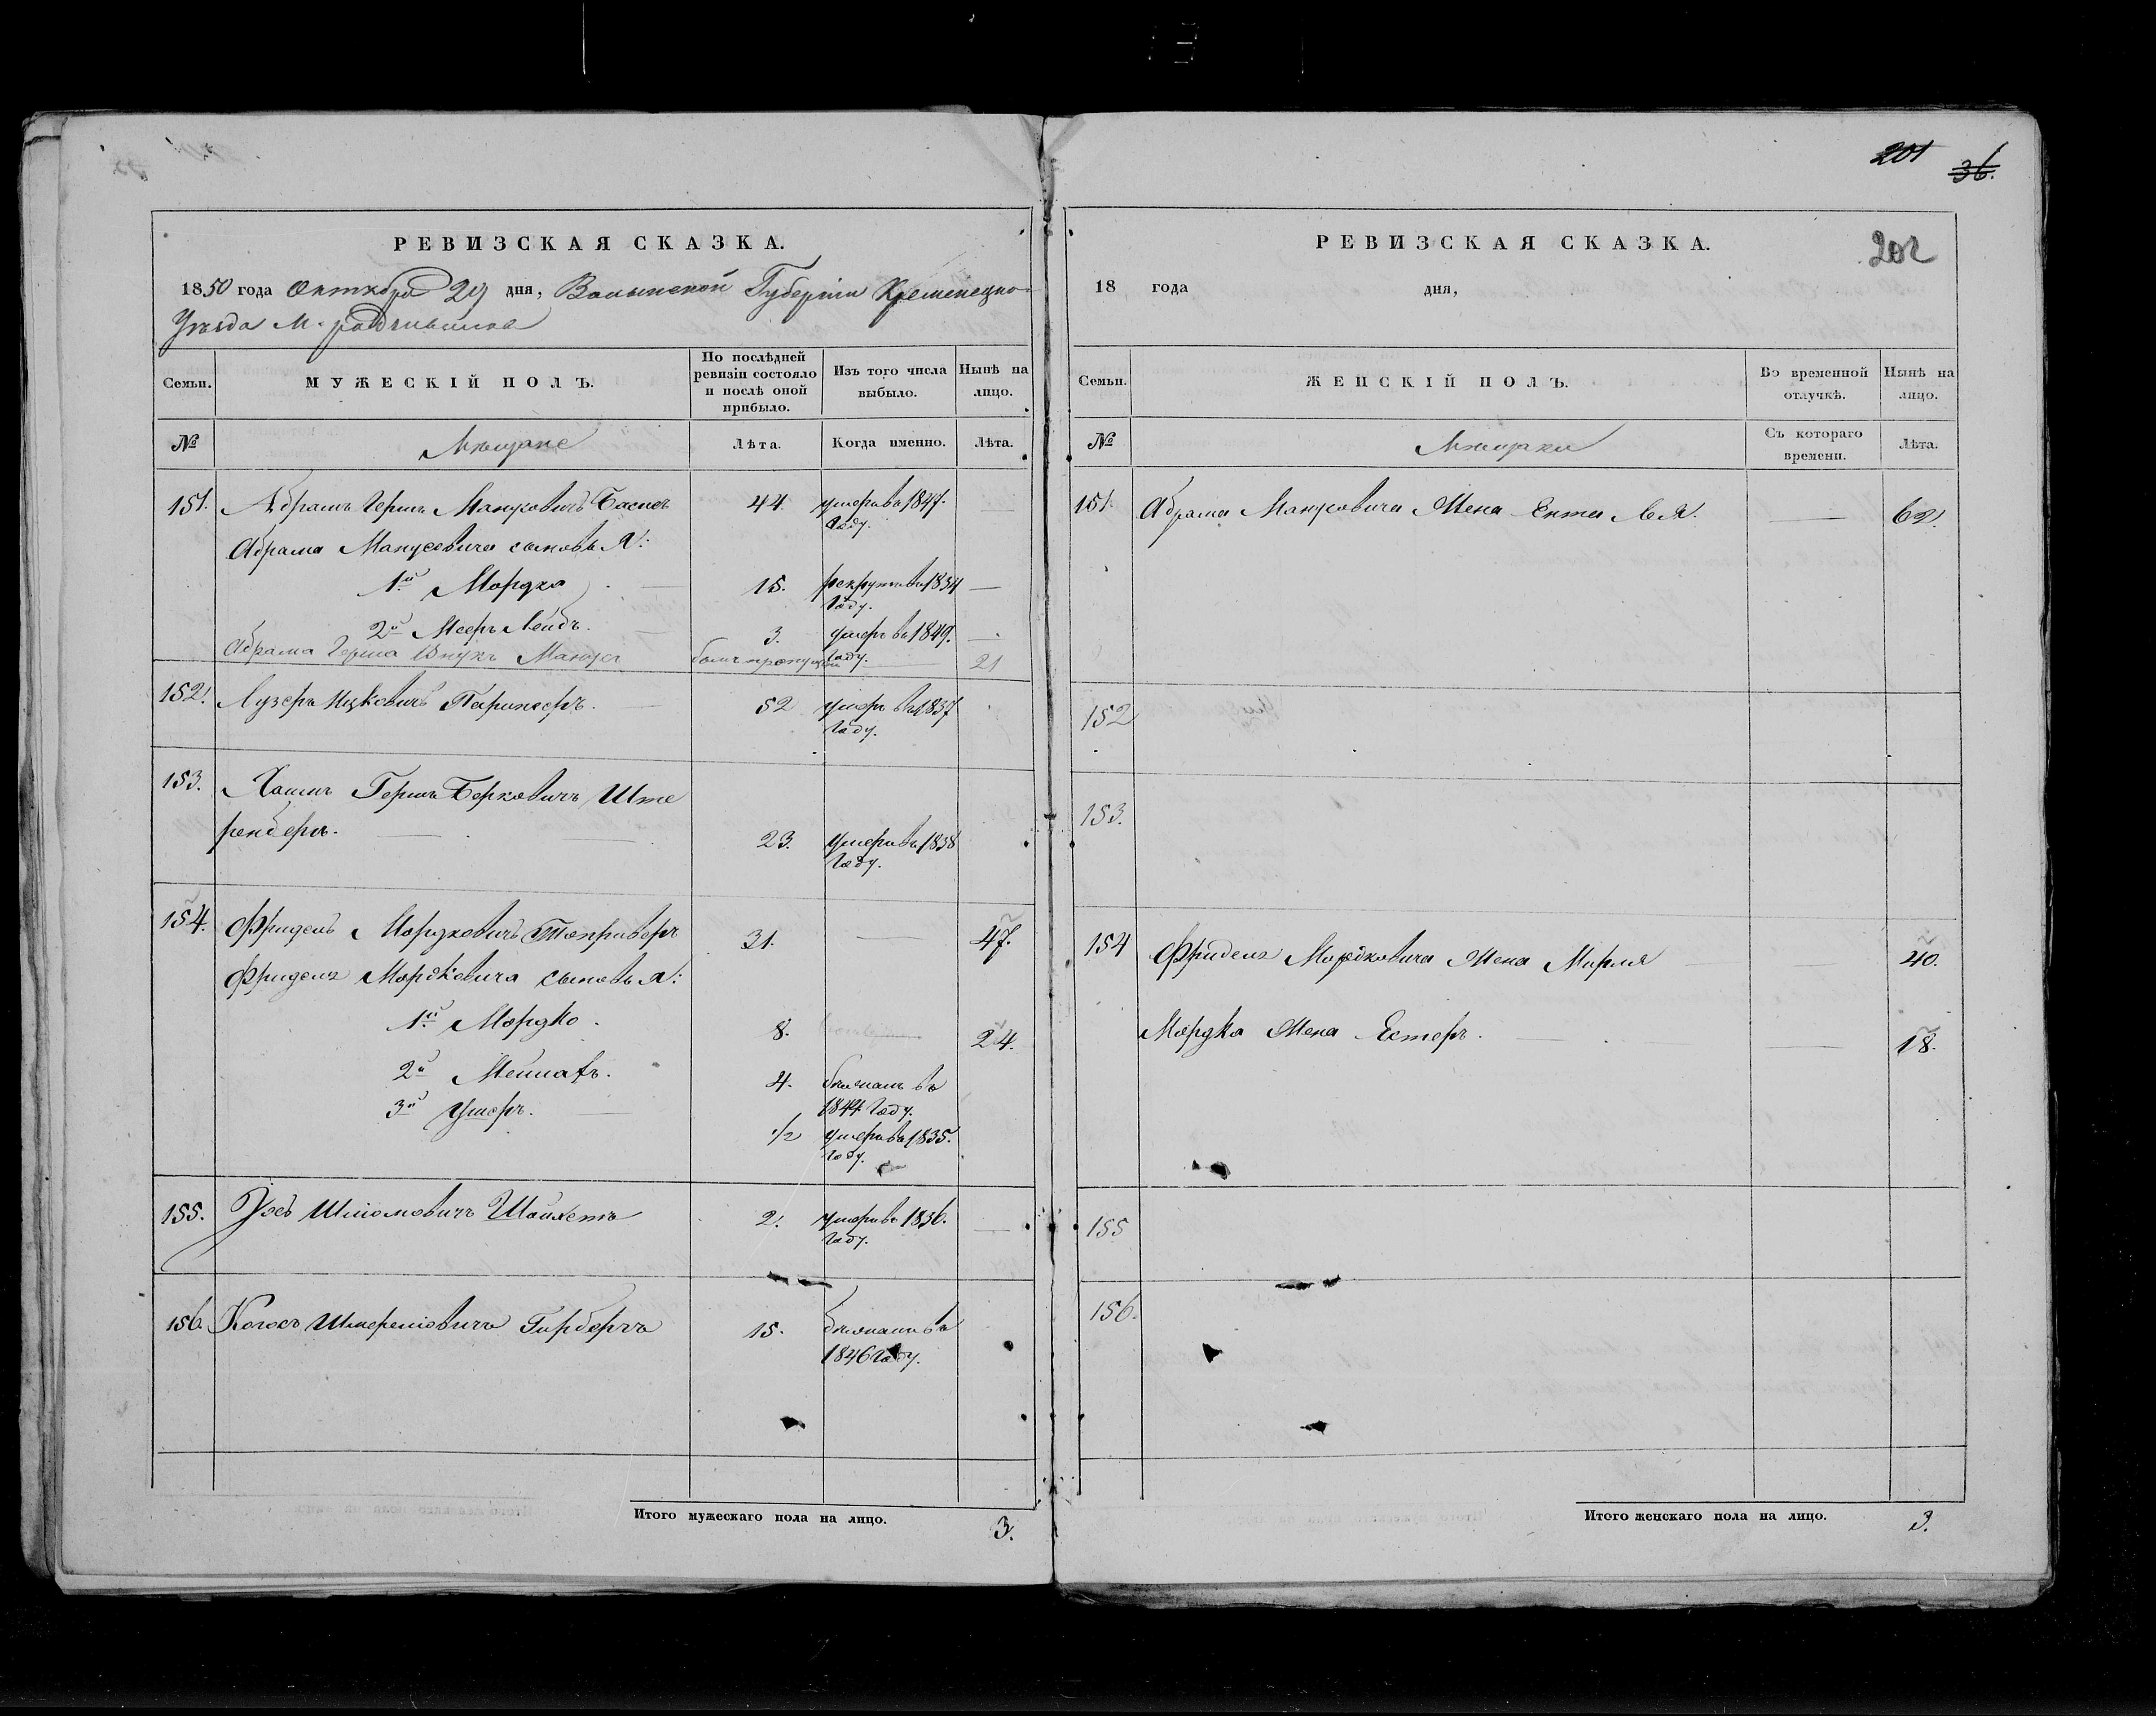 РЕВИЗСКАЯ СКАЗКА.
1850 года Октября 29 дня, Волынской Губернiи Кременецко-
Уѣзда М. радзивилов
Семьи. МУЖЕСКІЙ ПОЛЪ. По послѣдней ревизіи состояло и послѣ оной прибыло. Изъ того числа выбыло. Нынѣ на лицо.
№ Мѣщане Лѣта. Когда именно. Лѣта.
151. Абрамъ Гершъ Манусовичъ Баснъ 44. умеръ въ 1847. Году.
Абрама Манусовича сыновья:
1й Мордко 15. рекрутъ въ 1834 Году.
2й Мееръ Лейбъ. 3. умеръ въ 1849. Году.
Абрама Герша Внукъ Манусъ былъ пропущенъ 21
152. Лузеръ Ицковичъ 52 умеръ въ 1837 Году.
153. Хаимъ Гершъ Берковичъ Ште
ренберъ. 23. умеръ въ 1838 Году.
154. Фридель Мордковичъ 31. 47.
Фриделя Мордковича сыновья:
1й Мордко. 8. 24.
2й 4. бѣжалъ въ 1844 Году.
3й Ушеръ. 1/2 умеръ въ 1835. Году.
155. Іось Шліомовичъ Шойхетъ 2. умеръ въ 1836. Году.
156. Шмерліовичъ 15. бѣжалъ въ 1846 Году.
Итого мужескаго пола на лицо. 3.
201 36.
РЕВИЗСКАЯ СКАЗКА. 202
18 года дня,
Семьи. ЖЕНСКІЙ ПОЛЪ. Во временной отлучкѣ. Нынѣ на лицо.
№ Мѣщанки Съ котораго времени. Лѣта.
151. Абрама Манусовича Жена Ента 62.
152
153.
154 Фриделя Мордковича Жена Мирля 40.
Мордка Жена Естеръ. 18.
155
156.
Итого женскаго пола на лицо. 3.